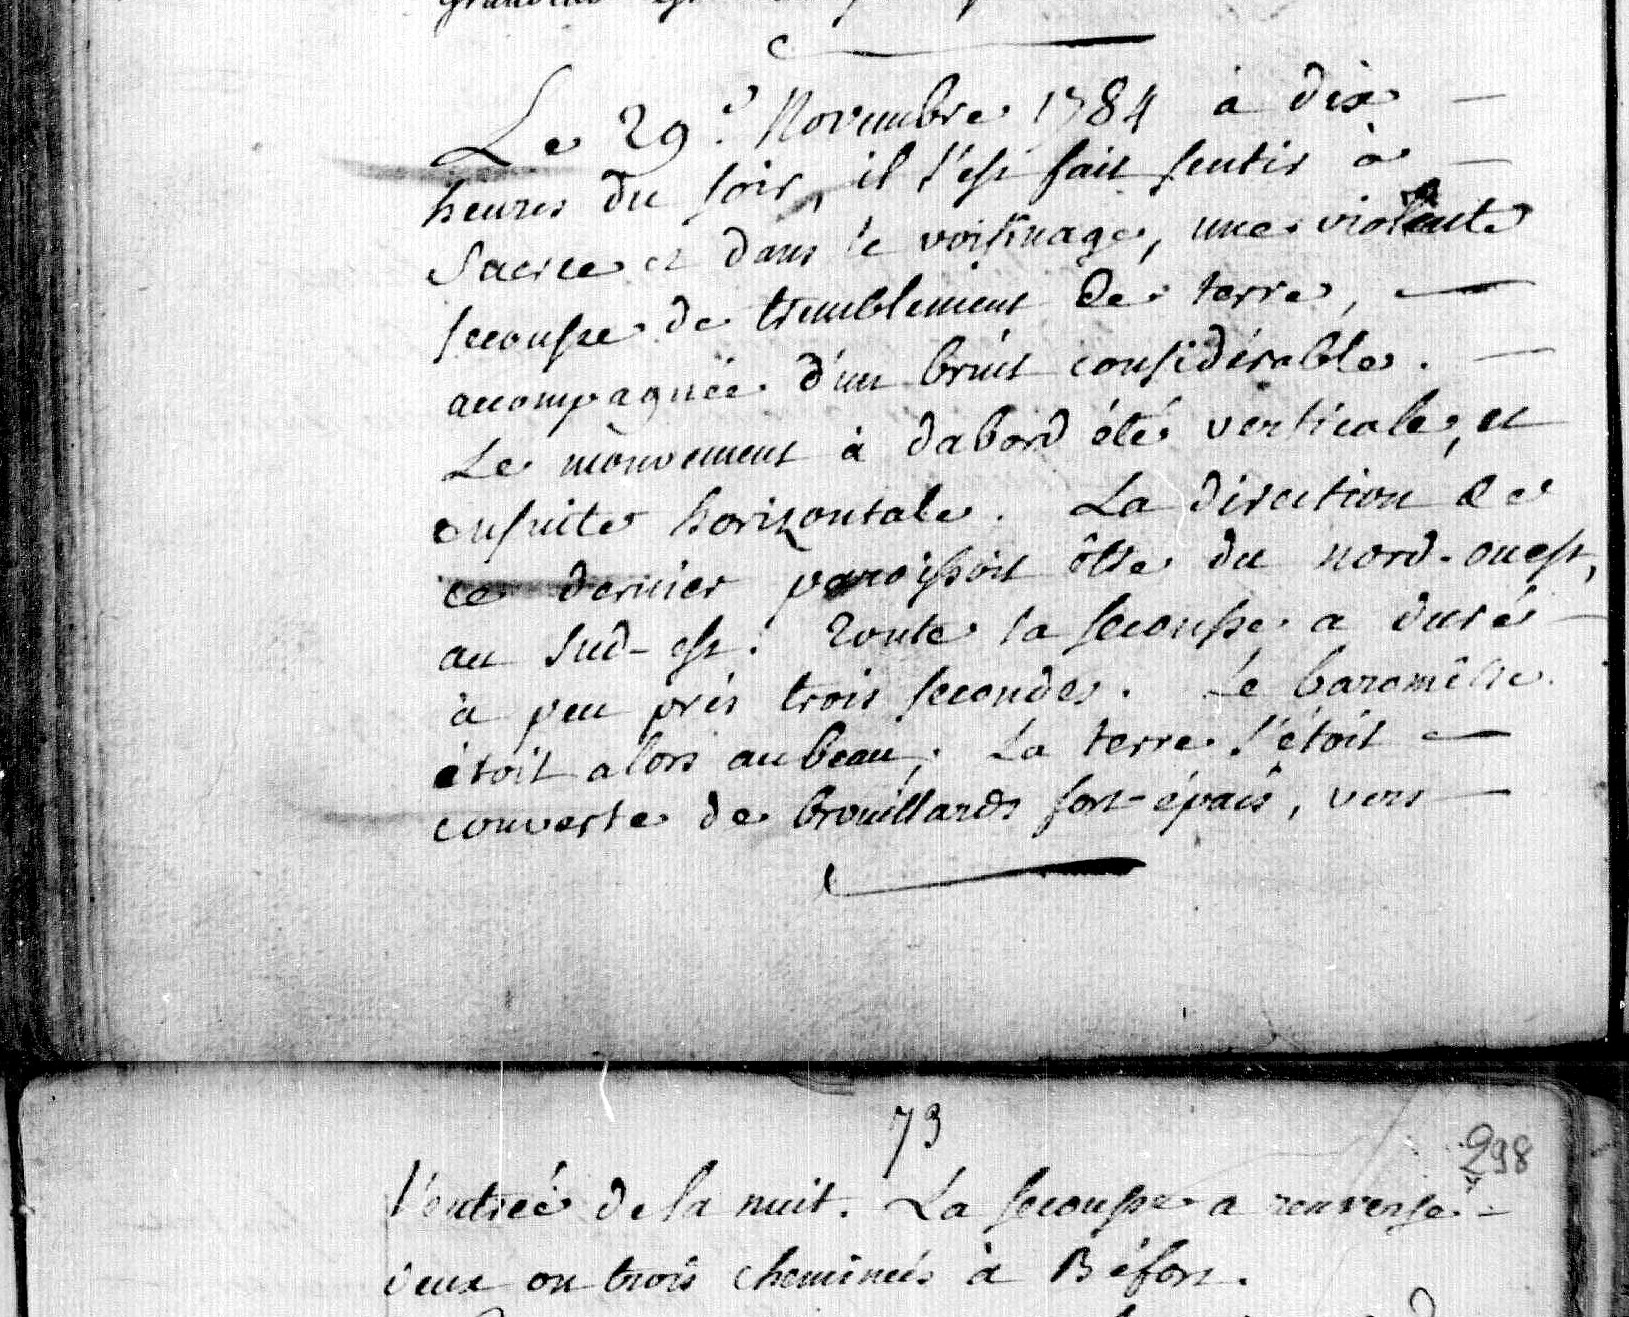 Le 29.e Novembre 1784 à dix
heures du soir, il s'est fait sentir à
et dans le voisinage, une violente
secousse de tremblement de terre,
accompagnée d'un bruit considérable.
Le mouvement à dabord été verticale, et
ensuite horizontale. La direction de
ce dernier paroissoit être du nord-ouest,
au sud-est. Toute la secousse a duré
à peu près trois secondes. Le baromêtre
étoit alors au beau; La terre s'étoit
couverte de brouillards fort-épais, vers
73
298
l'entrée de la nuit. La secousse a renversé
deux ou trois cheminées à Béfort.